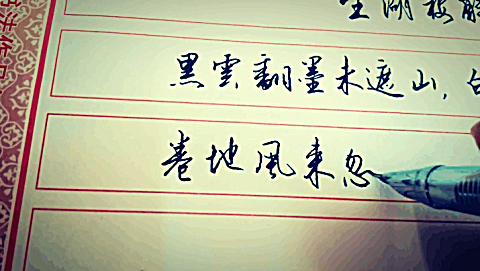 望湖樓醉
黑雲翻墨未遮山,白
卷地風来忽